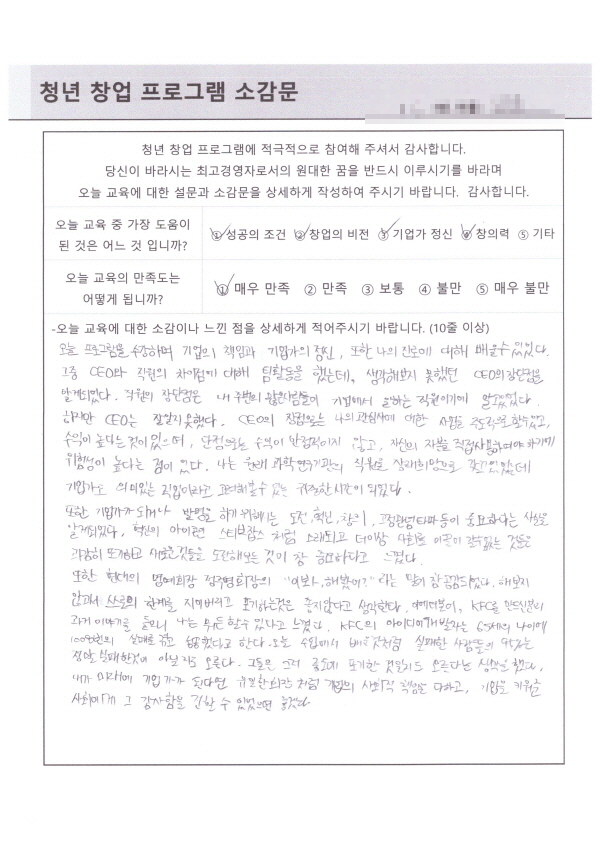 청년 창업 프로그램 소감문
청년 창업 프로그램에 적극적으로 참여해 주셔서 감사합니다.
당신이 바라시는 최고경영자로서의 원대한 꿈을 반드시 이루시기를 바라며
오늘 교육에 대한 설문과 소감문을 상세하게 작성하여 주시기 바랍니다. 감사합니다.
오늘 교육 중 가장 도움이
된 것은 어느 것 입니까?
① 성공의 조건 ② 창업의 비전 ③ 기업가 정신 ④ 창의력 ⑤ 기타
오늘 교육의 만족도는
어떻게 됩니까?
① 매우 만족 ② 만족 ③ 보통 ④ 불만 ⑤ 매우 불만
-오늘 교육에 대한 소감이나 느낀 점을 상세하게 적어주시기 바랍니다. (10줄 이상)
오늘 프로그램을 수강하며 기업의 책임과 기업가의 정신, 또한 나의 진로에 대해 배울수 있었다.
그중 CEO와 직원의 차이점에 대해 팀활동을 했는데, 생각해보지 못했던 CEO의 장단점을
알게되었다. 직원의 장단점은 내 주변의 많은사람들이 기업에서 일하는 직원이기에 알고있었다.
하지만 CEO는 잘알지못했다. CEO의 장점으로는 나의 관심사에 대한 사업을 주도적으로 할수있고,
수익이 높다는 것이 있으며, 단점으로는 수익이 안정적이지 않고, 자신의 자본을 직접사용하여야 하기에
위험성이 높다는 점이 있다. 나는 원래 과학연구기관의 직원을 장래희망으로 갖고있었는데
기업가도 의미있는 직업이라고 고려해볼수 있는 귀중한시간이 되었다.
또한 기업가가 되거나 발명을 하기위해서는 도전, 혁신, 창의, 고정관념타파 등이 중요하다는 사실을
알게되었다. 혁신의 아이콘 스티브잡스 처럼 오래되고 더이상 사회를 이끌어 갈수없는 것들은
과감히 포기하고 새로운것들을 도전해보는 것이 참 중요하다고 느꼈다.
또한 현대의 명예회장 정주영회장의 "이봐, 해봤어?" 라는 말이 참 공감되었다. 해보지
않고서 스스로의 한계를 지어버리고 포기하는것은 옳지않다고 생각한다. KFC를 만드신분의
과거 이야기를 들으니 나는 뭐든할수있다고 느꼈다. KFC의 아이디어개발자는 65세의 나이에
1008번의 실패를 겪고 성공했다고 한다. 오늘 수업에서 배운것처럼 실패한 사람들의 95%는
정말 실패한것이 아닐지도 모른다. 그들은 그저 중도에 포기한 것일지도 모른다는 생각을 했다.
내가 미래에 기업가가 된다면 유일한회장 처럼 기업의 사회적 책임을 다하고, 기업을 키워준
사회에게 그 감사함을 전할 수 있었으면 좋겠다.